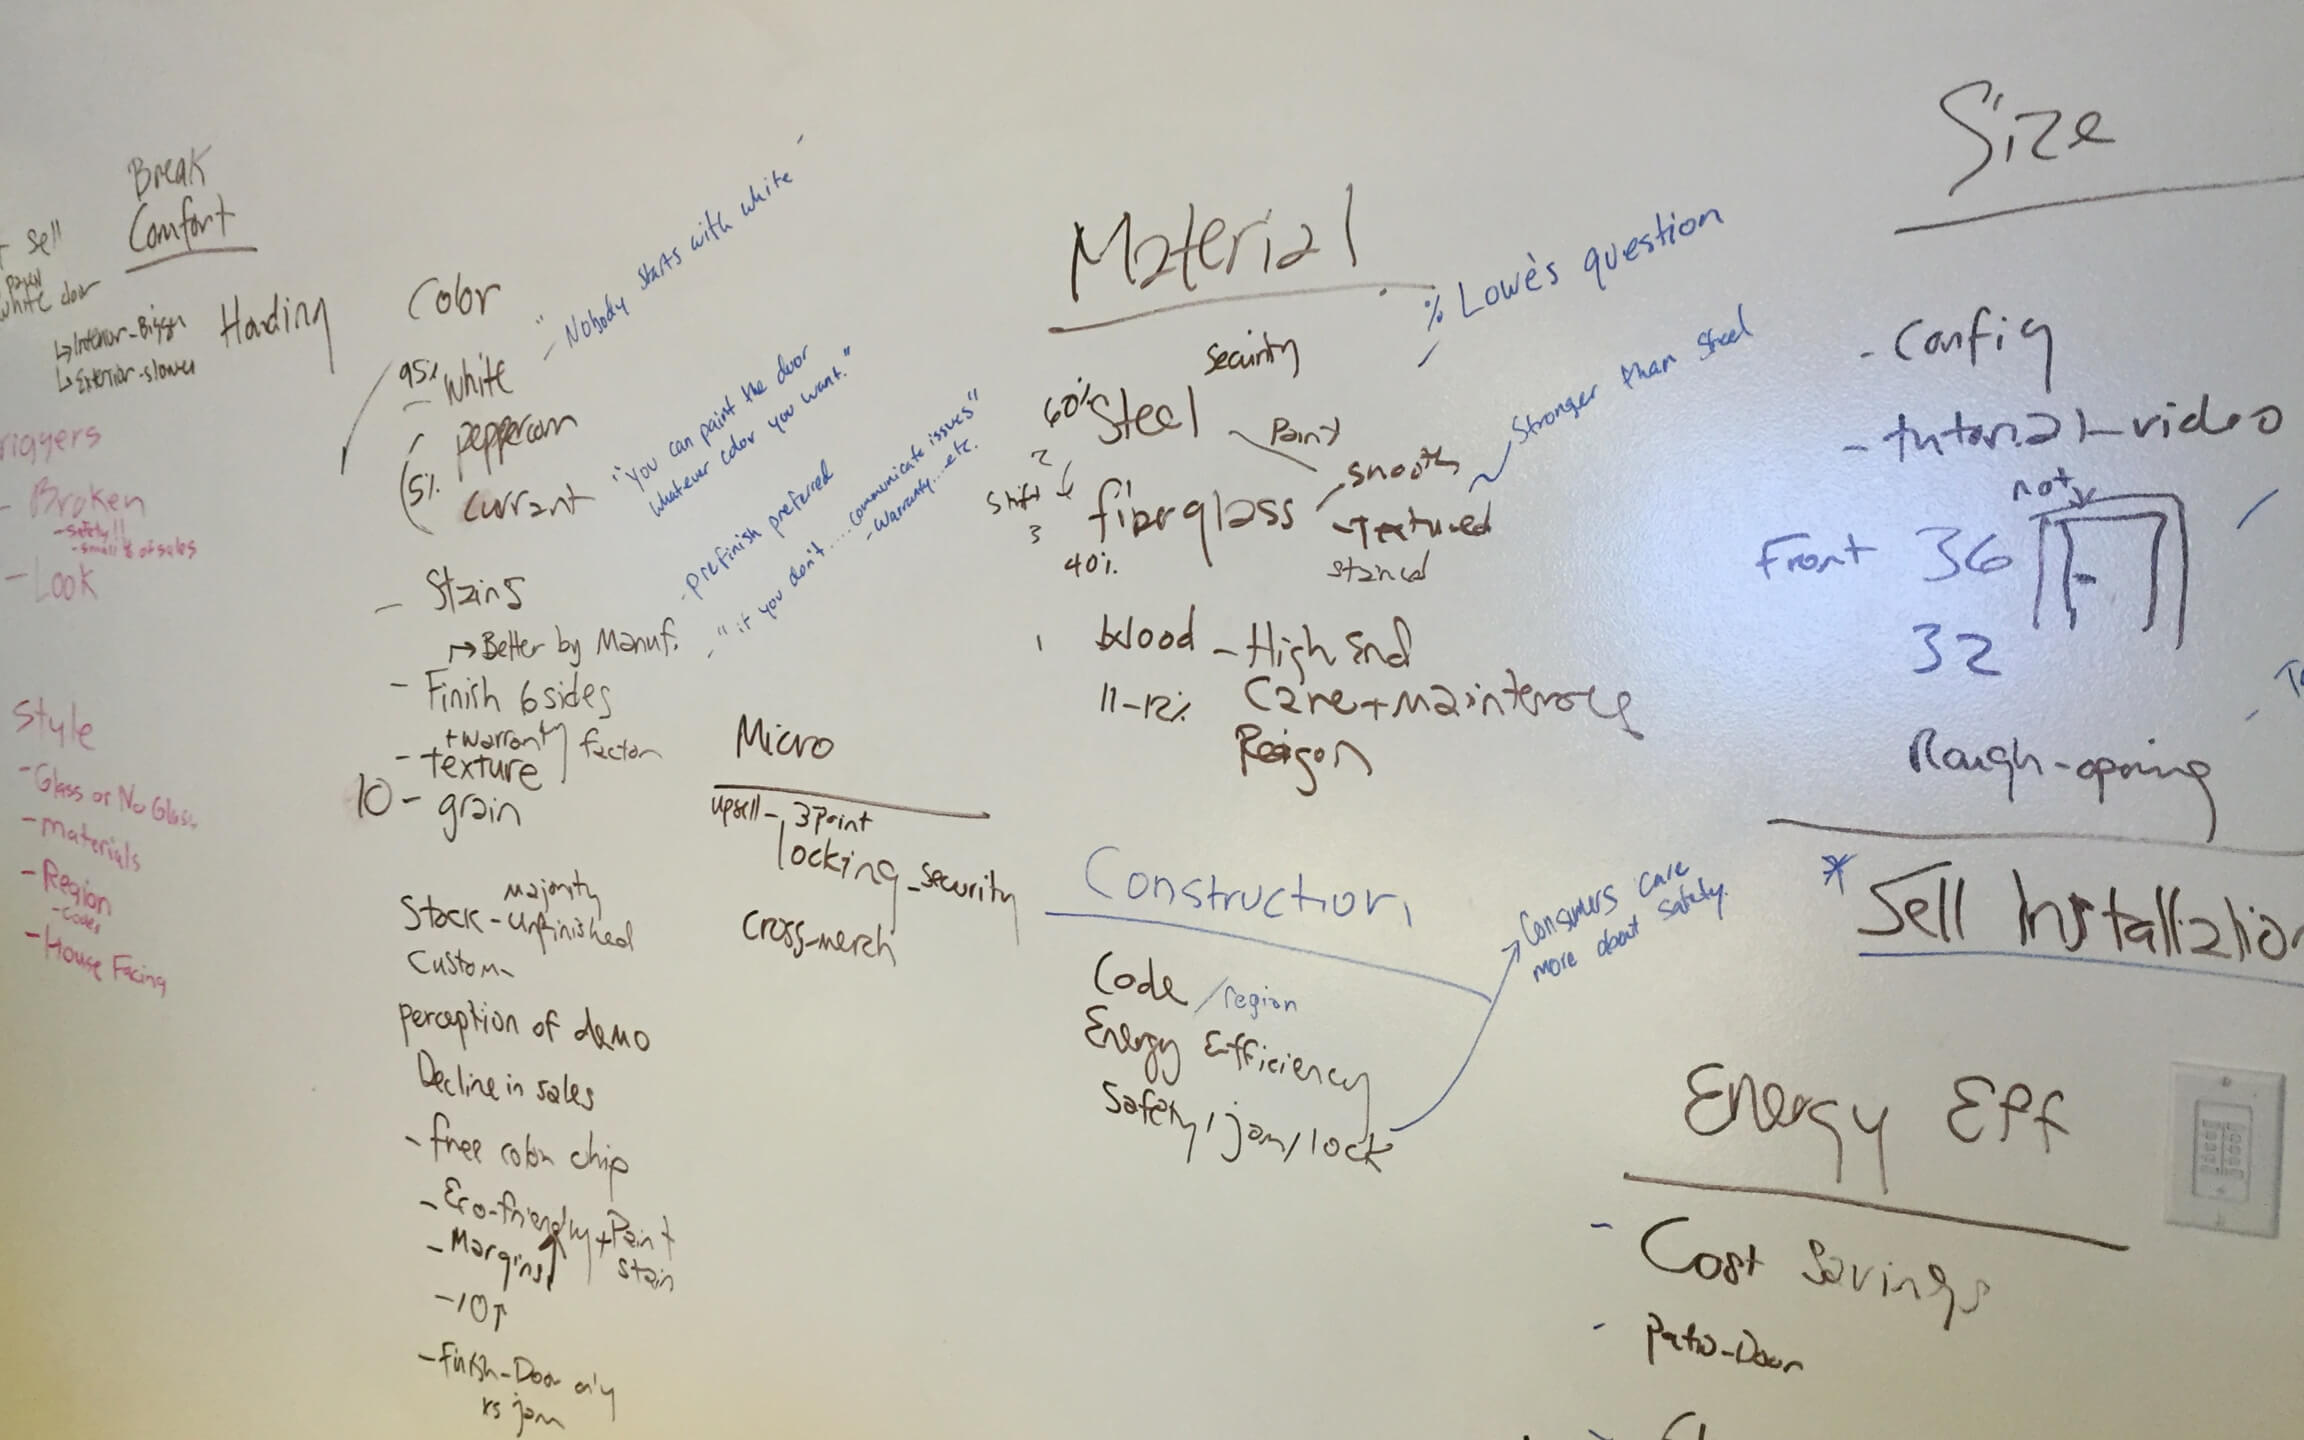 Break
Comfort
sell
white door
↳ Interior-Bigger
↳ Exterior-slower
riggers
- Broken
- safety!!
- small % of sales
- Look
Style
- Glass or No Glass
- materials
- Region
- codes
- House Facing
Color
95% White
peppercorn
5%
currant
"Nobody starts with white"
"You can paint the door
whatever color you want."
- Stains
↦ Better by Manuf.
- prefinish preferred
"if you don't.....communicate issues"
- warranty...etc.
- Finish 6 sides
+ warranty factor
- texture
10 - grain
Stock - majority
unfinished
Custom -
perception of demo
Decline in sales
- free color chip
- Eco-friendly + Paint
stain
- Margins
- 10↑
- finish-Door only
vs jam
Micro
upsell - 3 Point
locking - security
cross-merch
Material
% Lowe's question
Security
60% Steel
Paint
2
Shift
3
fiberglass
- smooth
- Textured
stained
Stronger than Steel
40%
1 Wood - High End
11-12% Care + Maintenance
Construction
Code / region
Energy Efficiency
Safety / jam / lock
Consumers care
more about safety.
Size
- Config
- tutorial - video
not
Front 36
32
Rough-opening
* Sell Installation
Energy Eff
- Cost Savings
- Patio-Door